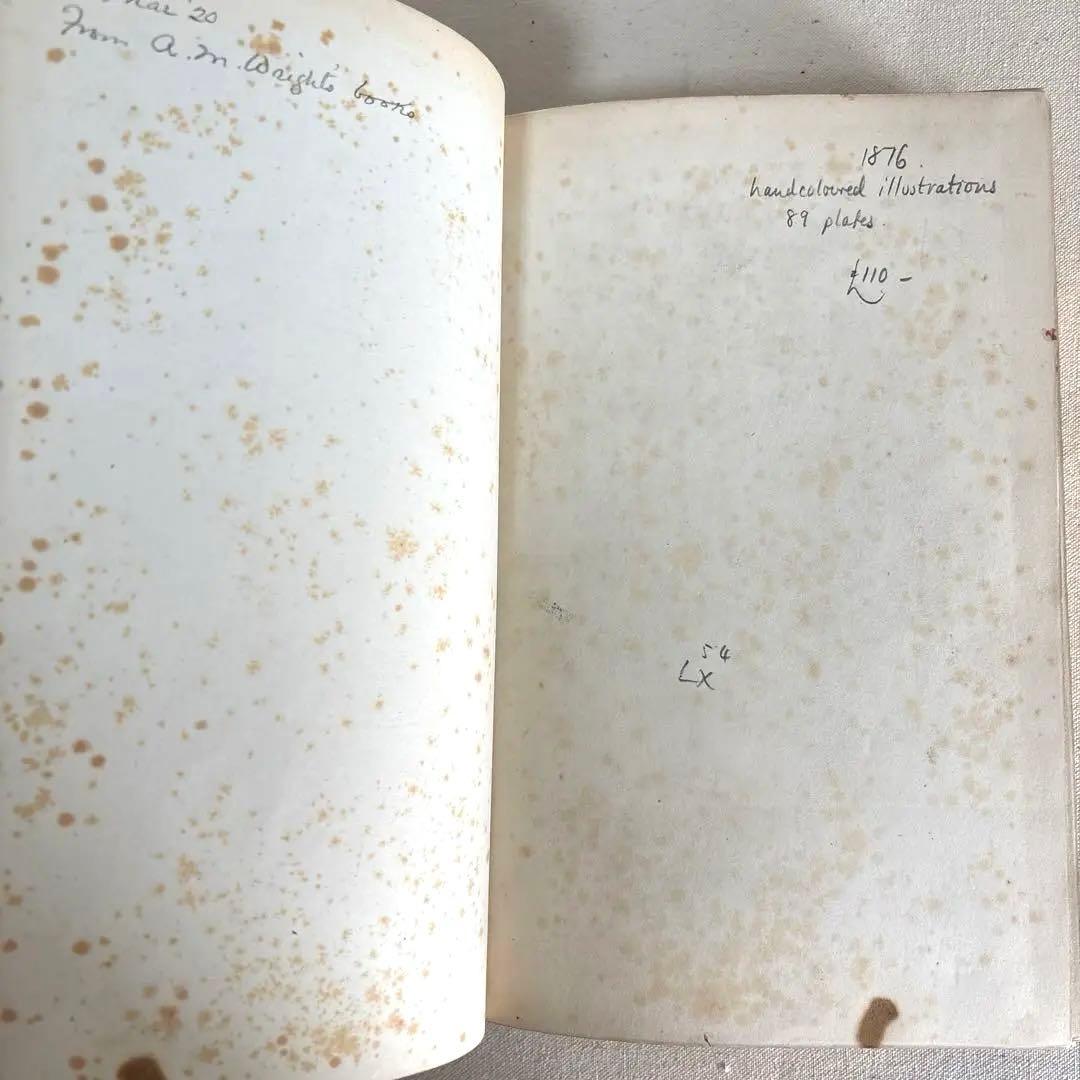 Mar '20
From A. M. Wright's books
1876.
handcoloured illustrations
89 plates.
£110 –
54
LX